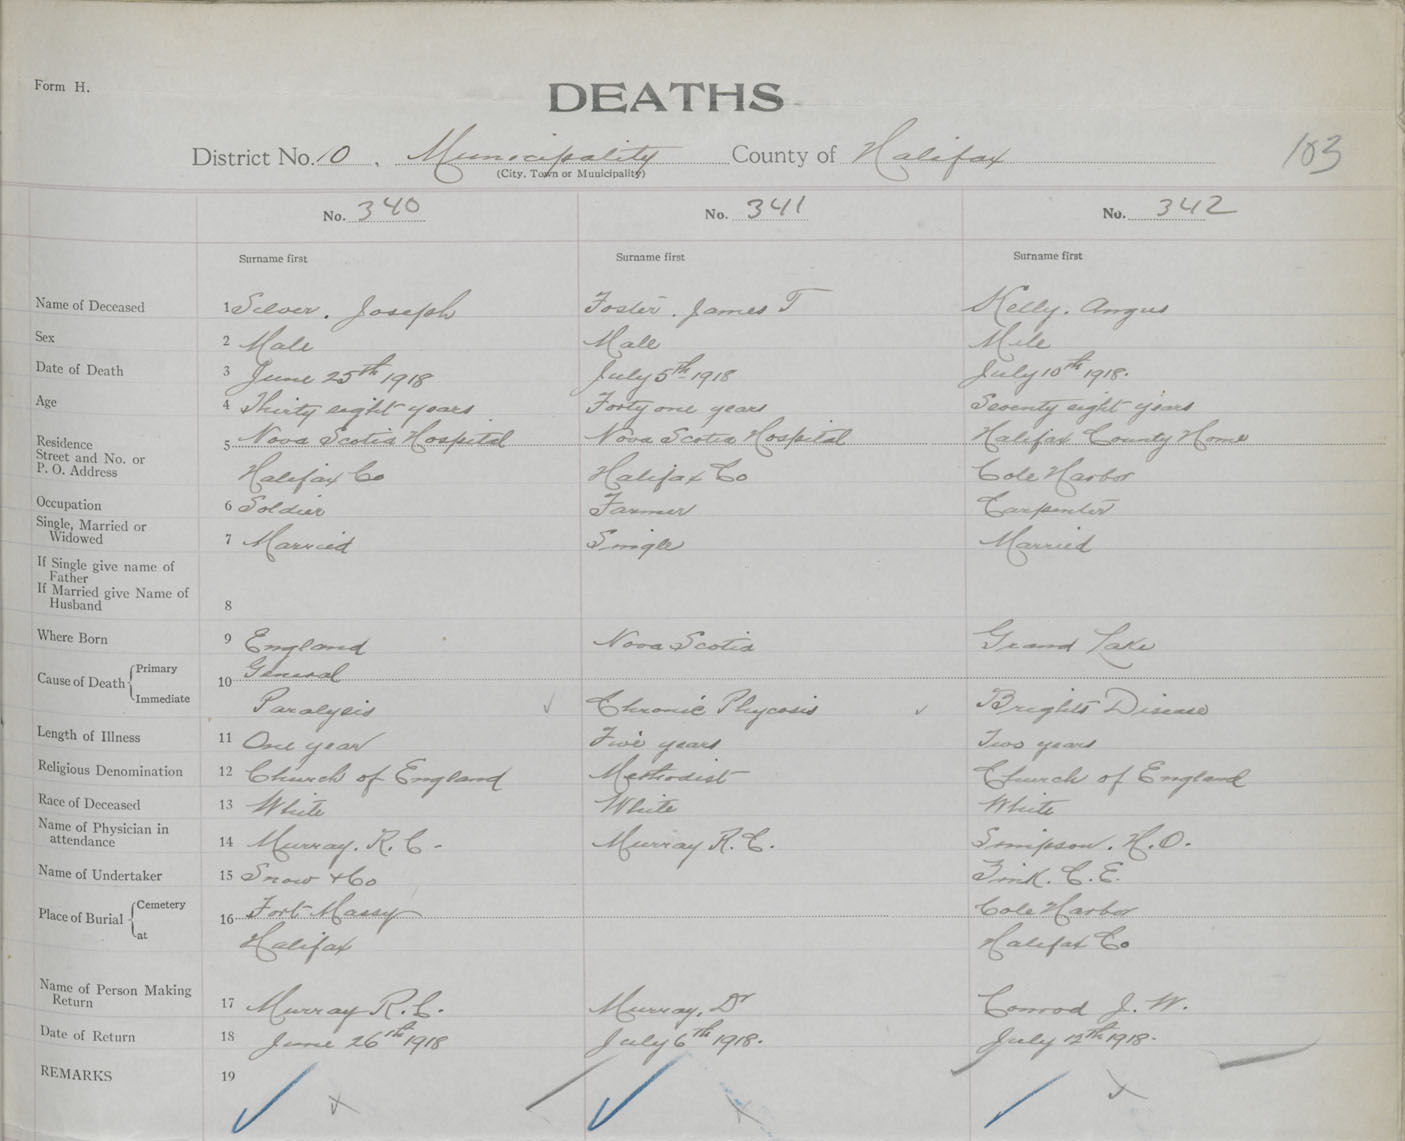 Form H.
DEATHS
District No. 10 , Municipality County of Halifax 103
(City, Town or Municipality)
No. 340 No. 341 No. 342
Surname first Surname first Surname first
Name of Deceased 1 Silver. Joseph Foster. James T Kelly. Angus
Sex 2 Male Male Male
Date of Death 3 June 25th 1918 July 5th 1918 July 10th 1918.
Age 4 Thirty eight years Forty one years Seventy eight years
Residence 5 Nova Scotia Hospital Nova Scotia Hospital Halifax County Home
Street and No. or
P. O. Address Halifax Co Halifax Co Cole Harbor
Occupation 6 Soldier Farmer Carpenter
Single, Married or
Widowed 7 Married Single Married
If Single give name of
Father
If Married give Name of
Husband 8
Where Born 9 England Nova Scotia Grand Lake
Cause of Death Primary 10 General
Immediate Paralysis Chronic Phycosis Brights Disease
Length of Illness 11 One year Five years Two years
Religious Denomination 12 Church of England Methodist Church of England
Race of Deceased 13 White White White
Name of Physician in
attendance 14 Murray. R. C. Murray R. C. Simpson. H. O.
Name of Undertaker 15 Snow & Co Tink. C. E.
Place of Burial Cemetery 16 Fort Massy Cole Harbor
at Halifax Halifax Co
Name of Person Making
Return 17 Murray R. C. Murray. Dr Conrod J. W.
Date of Return 18 June 26th 1918 July 6th 1918. July 12th 1918.
REMARKS 19